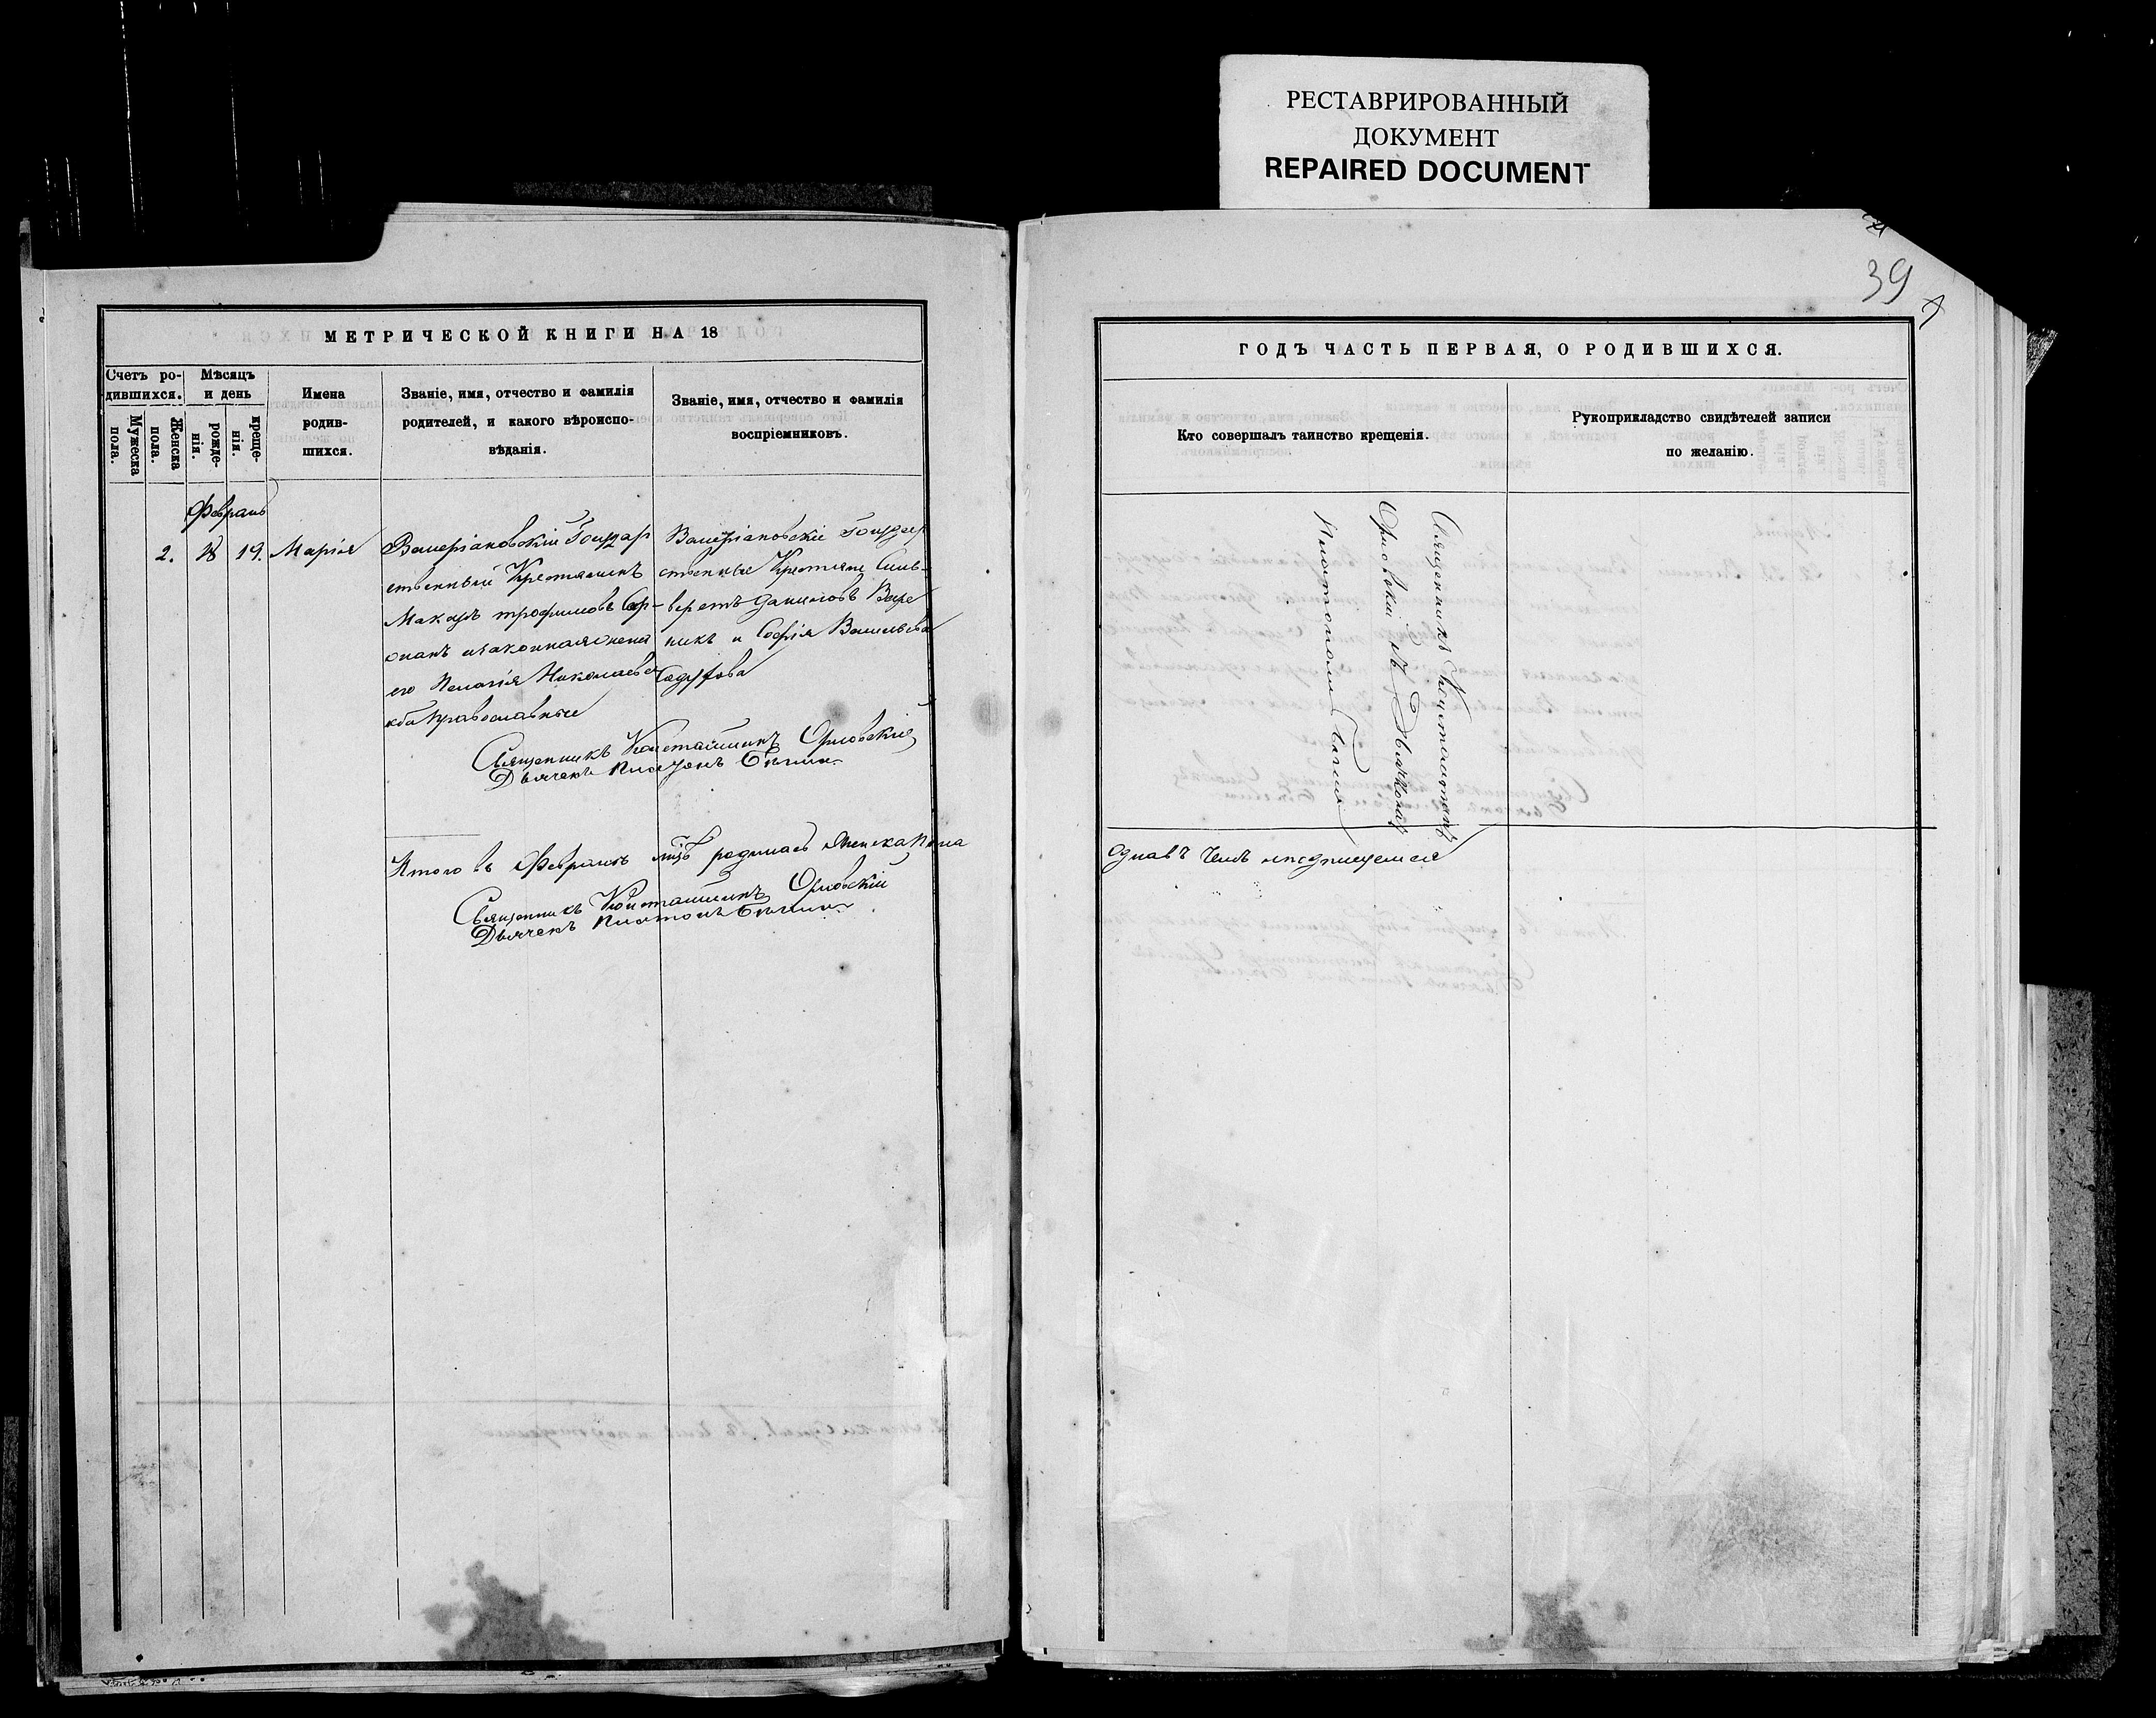 РЕСТАВРИРОВАННЫЙ
ДОКУМЕНТ
REPAIRED DOCUMENT
39
МЕТРИЧЕСКОЙ КНИГИ НА 18
Счетъ ро-
дившихся.
Мѣсяцъ
и день
Мужеска
пола.
Женска
пола.
рожде-
нія.
креще-
нія.
Имена
родив-
шихся.
Званіе, имя, отчество и фамилія
родителей, и какого вѣроиспо-
вѣданія.
Званіе, имя, отчество и фамилія
воспріемниковъ.
Февраль
2. 18 19. Марія
Валеріановскій Государ
ственный Крестьянинъ
Макаръ трофимовъ
и законная жена
его Пелагія Николаева
православные
Валеріановскіе Государ
ственные Крестьяне
Даниловъ
и Софія Васильева
Священникъ Константинъ Орловскій
Дьячекъ Платонъ
Итого въ Февралѣ мцѣ родилась женска пола
Священникъ Константинъ Орловскій
Дьячекъ Платонъ
ГОДЪ ЧАСТЬ ПЕРВАЯ, О РОДИВШИХСЯ.
Кто совершалъ таинство крещенія.
Рукоприкладство свидѣтелей записи
по желанію.
Священникъ Константинъ
Орловскій съ Дьячкомъ
Платономъ
одна въ чемъ и подпишемся